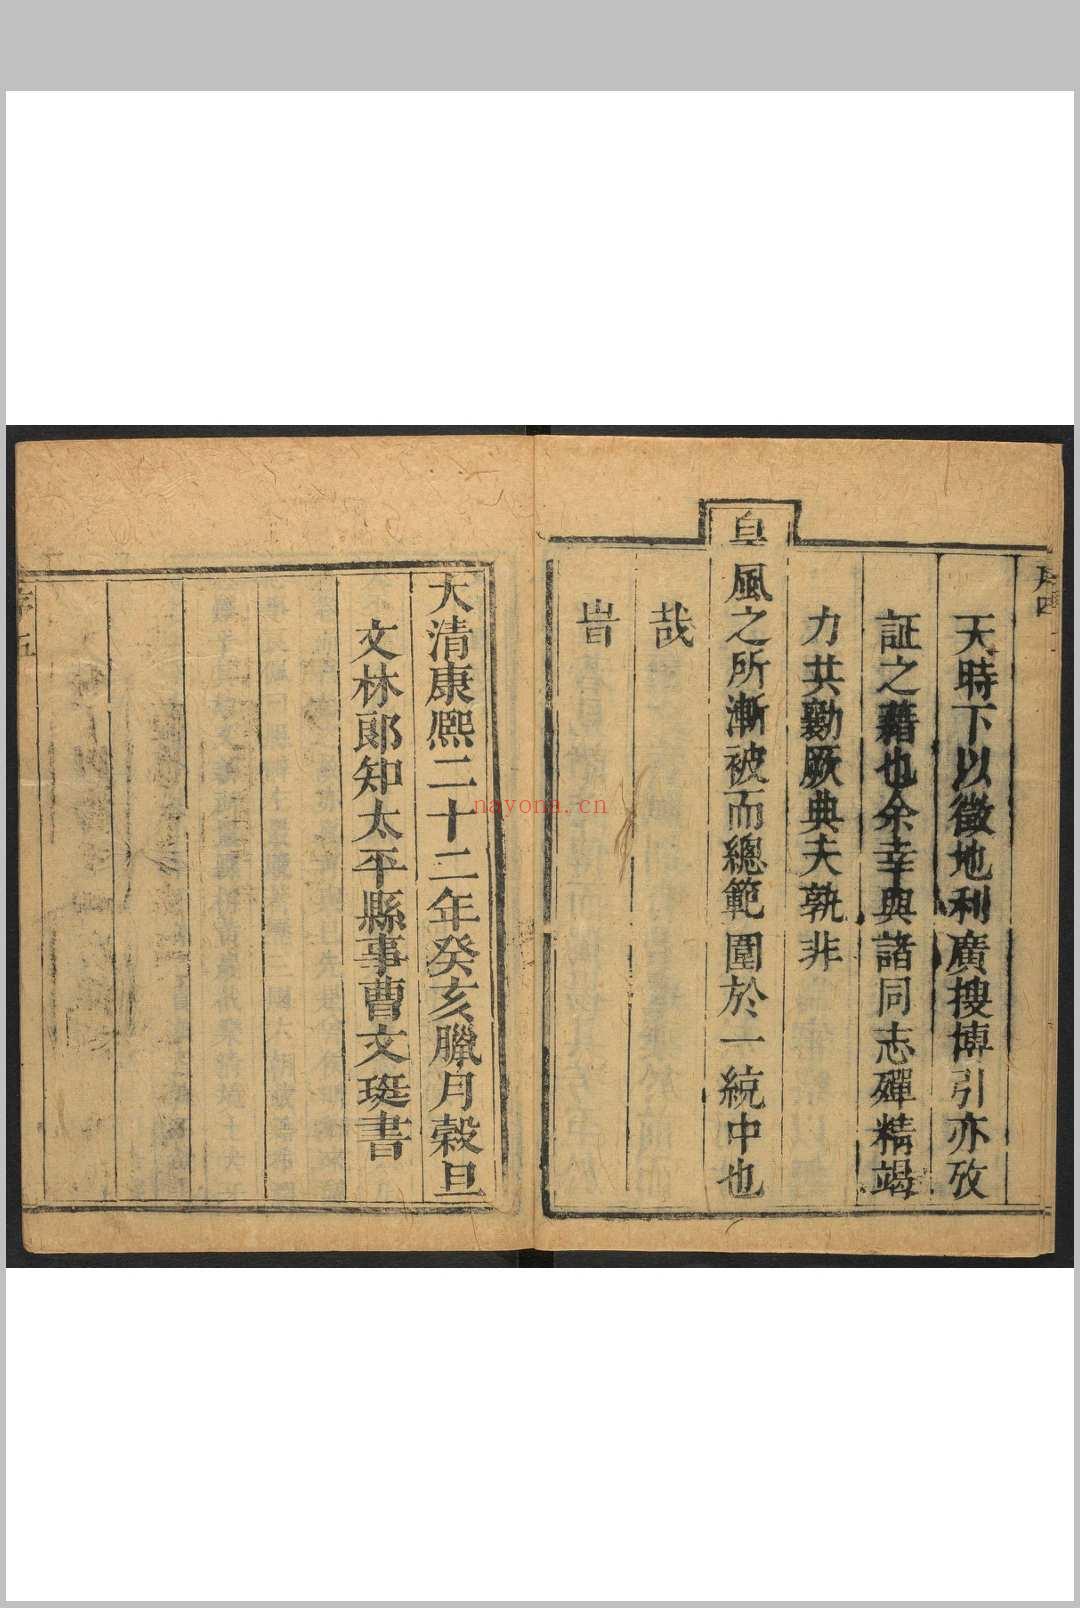 天時下以徵地利廣搜博引亦攷
証之藉也余幸與諸同志殫精竭
力共勷厥典夫孰非
皇風之所漸被而總範圍於一統中也
哉
旹
大清康熙二十二年癸亥臘月穀旦
文林郎知太平縣事曹文珽書
nayona.cn